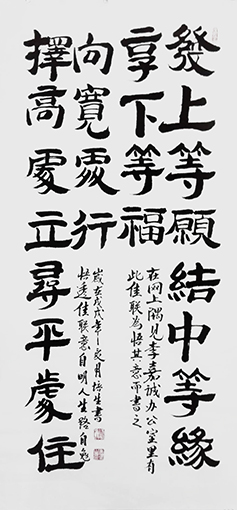 發上等願結中等緣
享下等福
在网上偶見李嘉诚办公室里有
此佳联為悟其意而書之
向寬處行
歲在戊戌年夏月培生書
悟透佳联意自明人生路自
擇高處立尋平處住